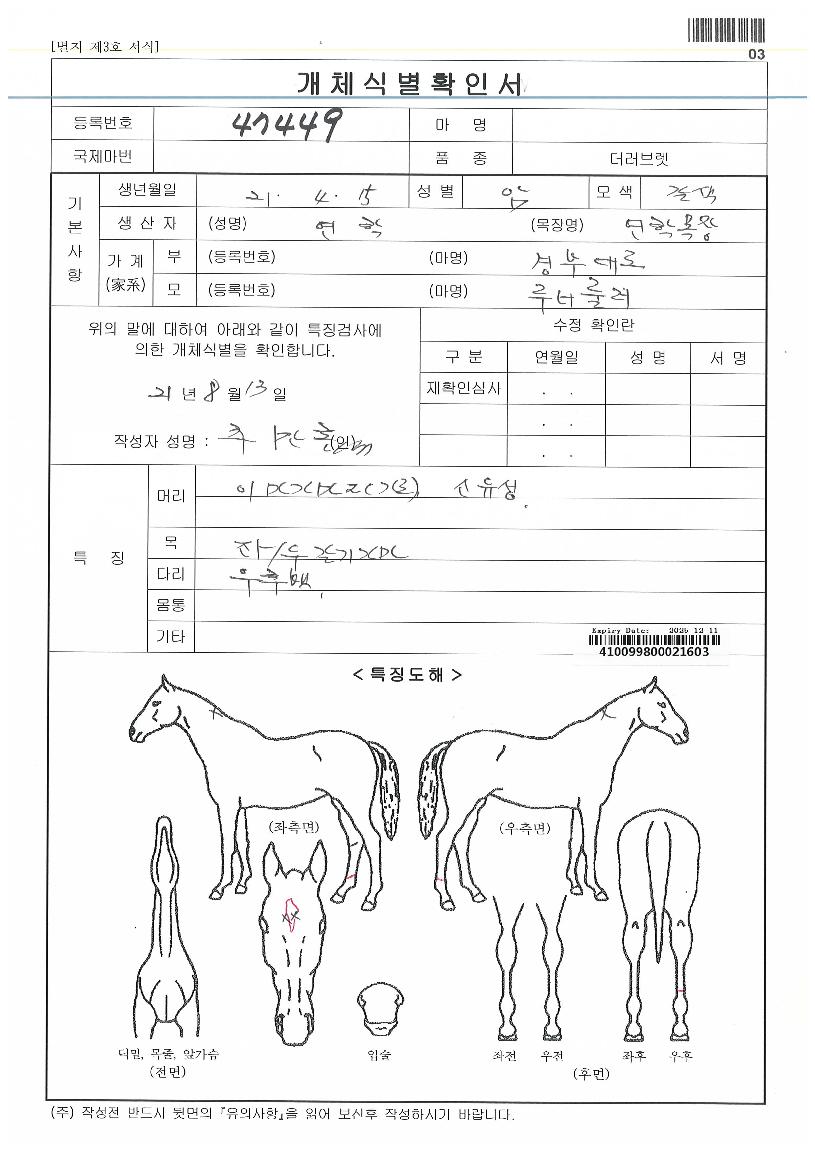 [별지 제3호 서식]
03
개체식별확인서
등록번호 47449 마 명
국제마번 품 종 더러브렛
기본사항
생년월일 21. 4. 15 성 별 암 모 색 갈색
생 산 자 (성명) 연학 (목장명) 연학목장
가 계 (家系) 부 (등록번호) (마명) 경부대로
모 (등록번호) (마명)
위의 말에 대하여 아래와 같이 특징검사에
의한 개체식별을 확인합니다.
21 년 8 월 13 일
작성자 성명 : (인)
수정 확인란
구 분 연월일 성 명 서 명
재확인심사 . .
. .
. .
특 징
머리
목
다리 우후백
몸통
기타
Expiry Date: 2025 12 11
410099800021603
< 특징도해 >
(좌측면) (우측면)
턱밑, 목줄, 앞가슴 입술 좌전 우전 좌후 우후
(전면) (후면)
(주) 작성전 반드시 뒷면의 『유의사항』을 읽어 보신후 작성하시기 바랍니다.